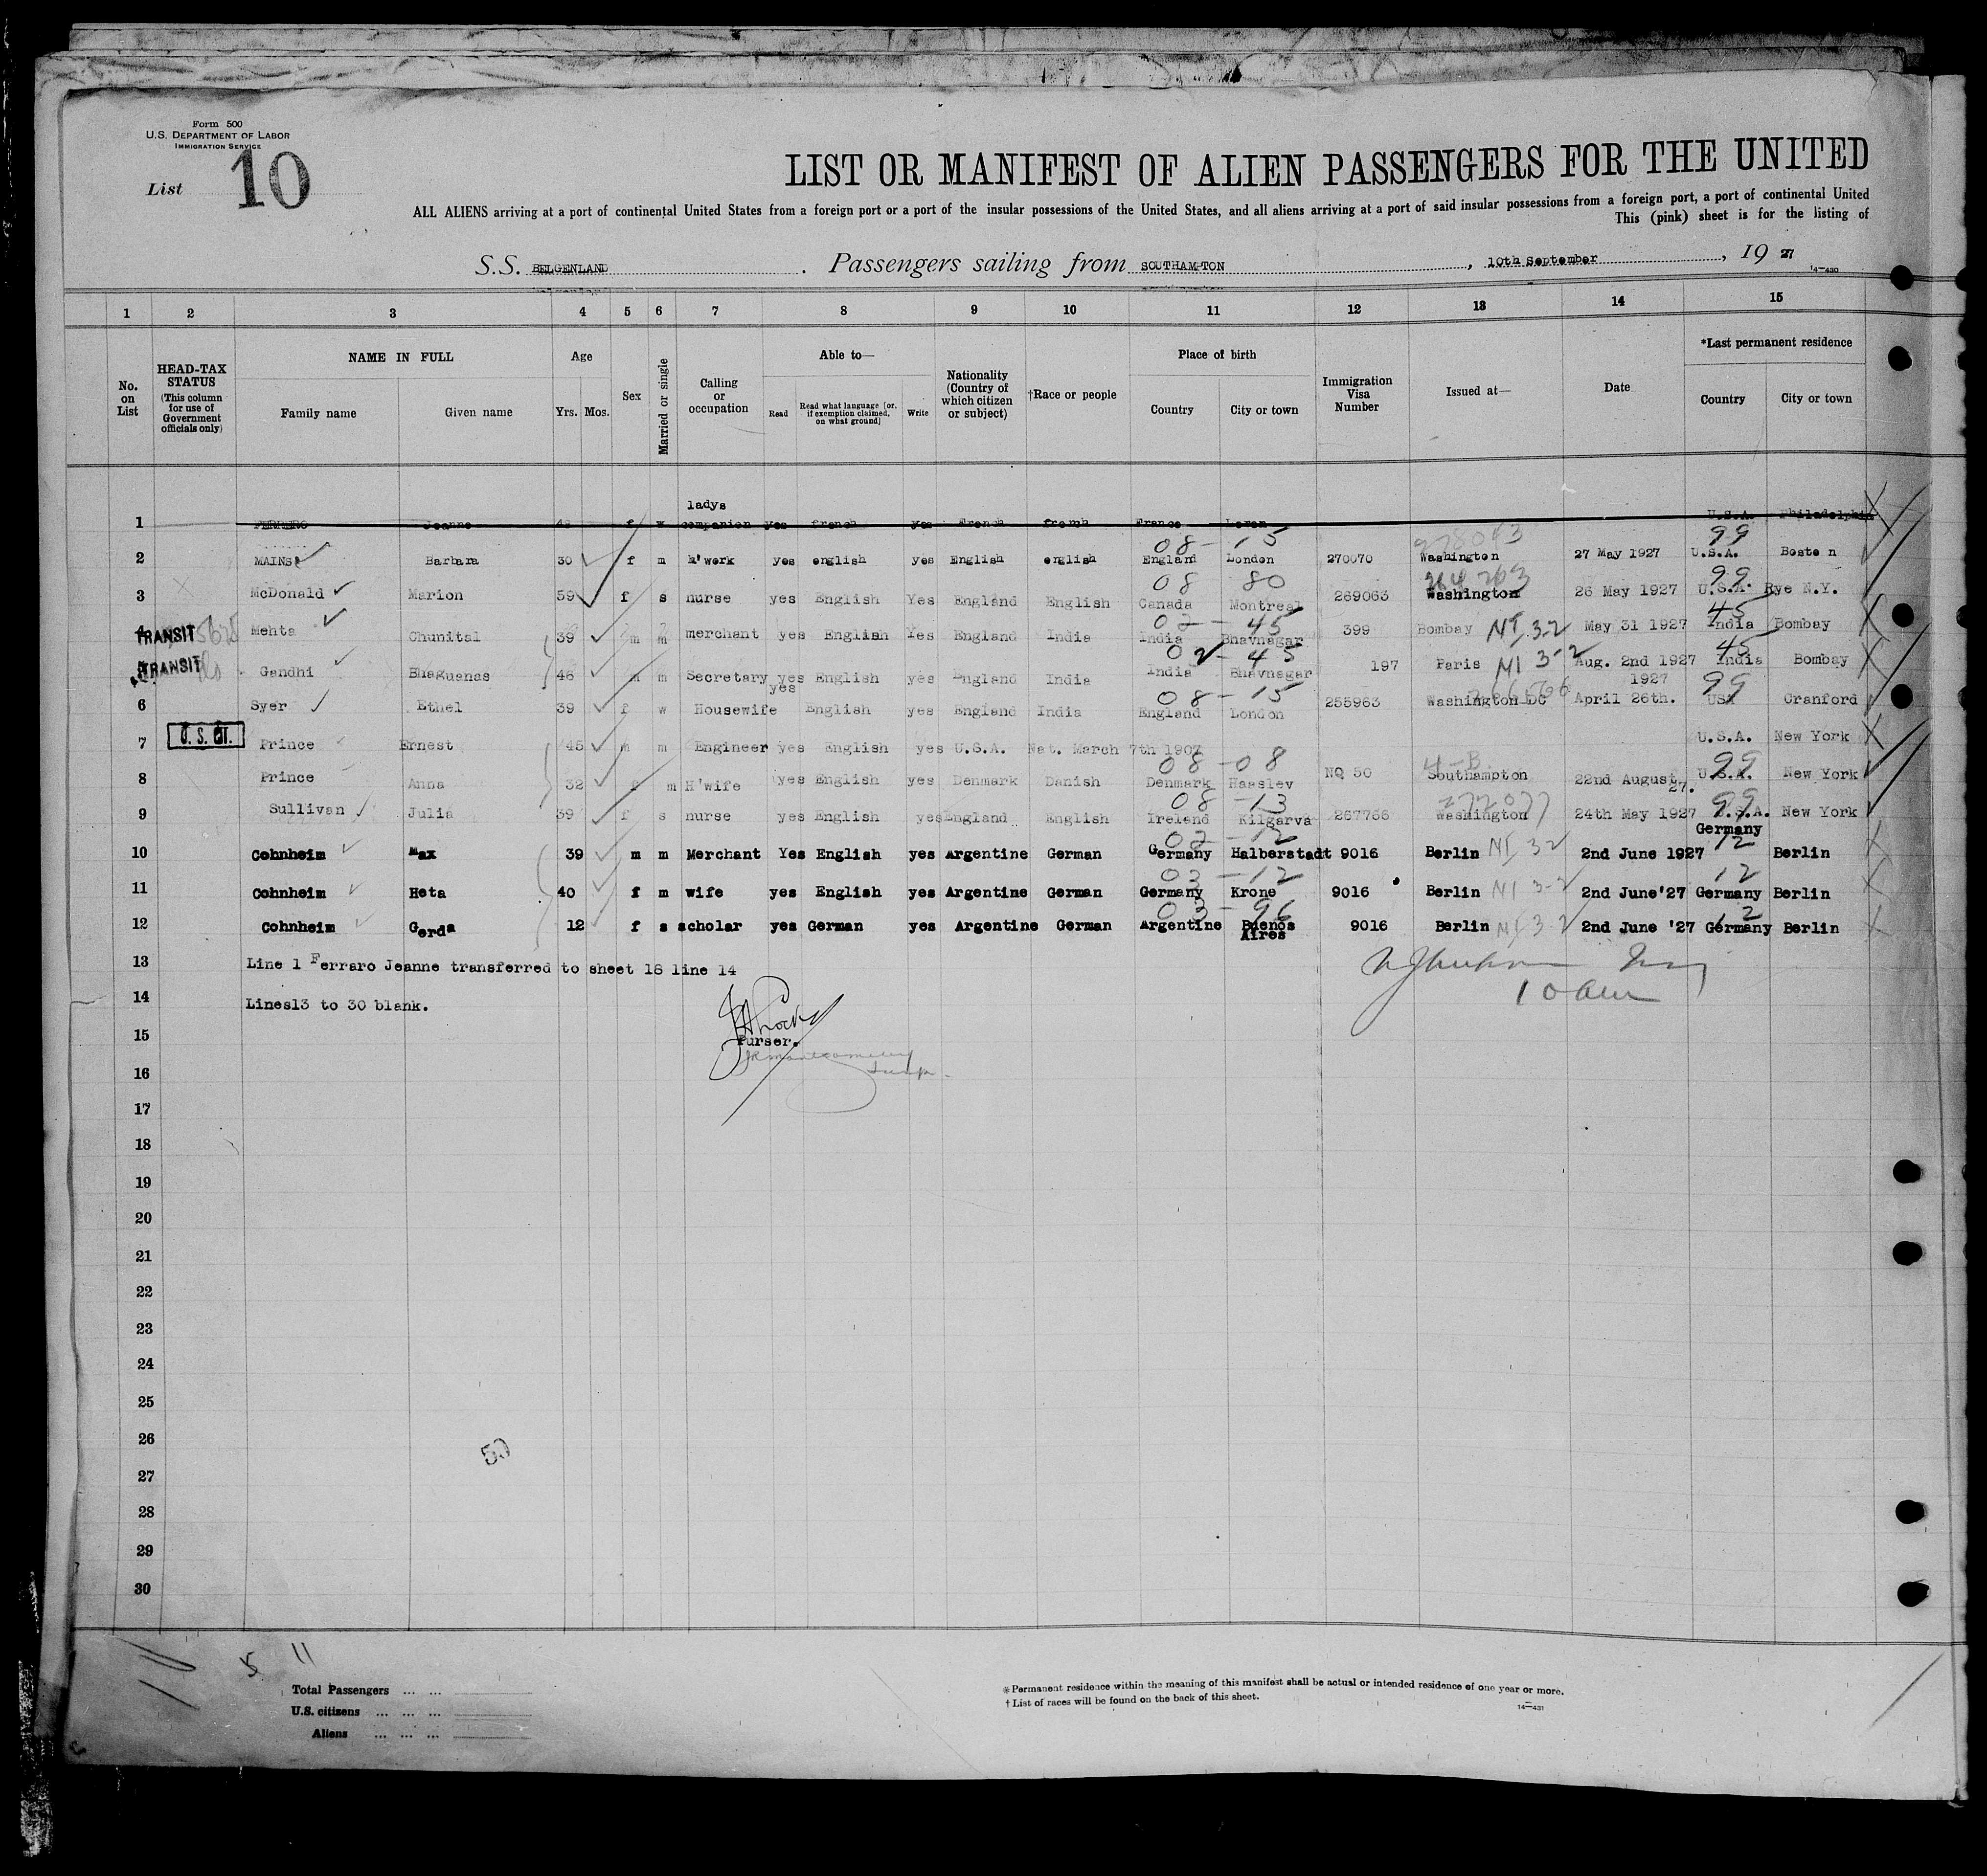 Form 500
U.S. DEPARTMENT OF LABOR
IMMIGRATION SERVICE
List 10
LIST OR MANIFEST OF ALIEN PASSENGERS FOR THE UNITED
ALL ALIENS arriving at a port of continental United States from a foreign port or a port of the insular possessions of the United States, and all aliens arriving at a port of said insular possessions from a foreign port, a port of continental United
This (pink) sheet is for the listing of
S.S. BELGENLAND . Passengers sailing from SOUTHAMPTON , 10th September , 19 27
14—430
1 2 3 4 5 6 7 8 9 10 11 12 13 14 15
No. on List
HEAD-TAX STATUS (This column for use of Government officials only)
NAME IN FULL
Family name Given name
Age
Yrs. Mos.
Sex
Married or single
Calling or occupation
Able to—
Read Read what language (or, if exemption claimed, on what ground) Write
Nationality (Country of which citizen or subject)
†Race or people
Place of birth
Country City or town
Immigration Visa Number
Issued at—
Date
*Last permanent residence
Country City or town
ladys
1 Jeanne f w companion yes french yes French french France U.S.A. Philadelphia
08 - 15 99
2 MAINS Barbara 30 f m h'werk yes english yes English english England London 270070 Washington 27 May 1927 U.S.A. Boston
08 80 99
3 McDonald Marion 59 f s nurse yes English Yes England English Canada Montreal 269063 Washington 26 May 1927 U.S.A. Rye N.Y.
02 - 45 45
4 TRANSIT Mehta Chunital 39 m m merchant yes English Yes England India India Bhavnagar 399 Bombay NI 3-2 May 31 1927 India Bombay
02 - 45 45
TRANSIT Gandhi Bhaguenas 46 m m Secretary yes English yes England India India Bhavnagar 197 Paris NI 3-2 Aug. 2nd 1927 India Bombay
08 - 15 1927 99
6 Syer Ethel 39 f w Housewife yes English yes England India England London 255963 Washington DC April 26th. USA Cranford
7 U.S. CIT. Prince Ernest 45 m m Engineer yes English yes U.S.A. Nat. March 7th 1907 U.S.A. New York
08 - 08 4-B. 99
8 Prince Anna 32 f m H'wife yes English yes Denmark Danish Denmark Haaslev NQ 50 Southampton 22nd August 27. U.S.A. New York
08 - 13 272077 99
9 Sullivan Julia 39 f s nurse yes English yes England English Ireland Kilgarva 267766 Washington 24th May 1927 U.S.A. New York
02 - 12 12
10 Cohnheim Max 39 m m Merchant Yes English yes Argentine German Germany Halberstadt 9016 Berlin NI 3-2 2nd June 1927 Germany Berlin
03 - 12 12
11 Cohnheim Heta 40 f m wife yes English yes Argentine German Germany Krone 9016 Berlin NI 3-2 2nd June'27 Germany Berlin
03 - 96 12
12 Cohnheim Gerda 12 f s scholar yes German yes Argentine German Argentine Buenos Aires 9016 Berlin NI 3-2 2nd June '27 Germany Berlin
13 Line 1 Ferraro Jeanne transferred to sheet 18 line 14
14 Lines13 to 30 blank.
10 am
15
Purser.
16
17
18
19
20
21
22
23
24
25
26
50
27
28
29
30
5 11
Total Passengers ... ...
U.S. citizens ... ... ...
Aliens ... ... ...
* Permanent residence within the meaning of this manifest shall be actual or intended residence of one year or more.
† List of races will be found on the back of this sheet.
14—431